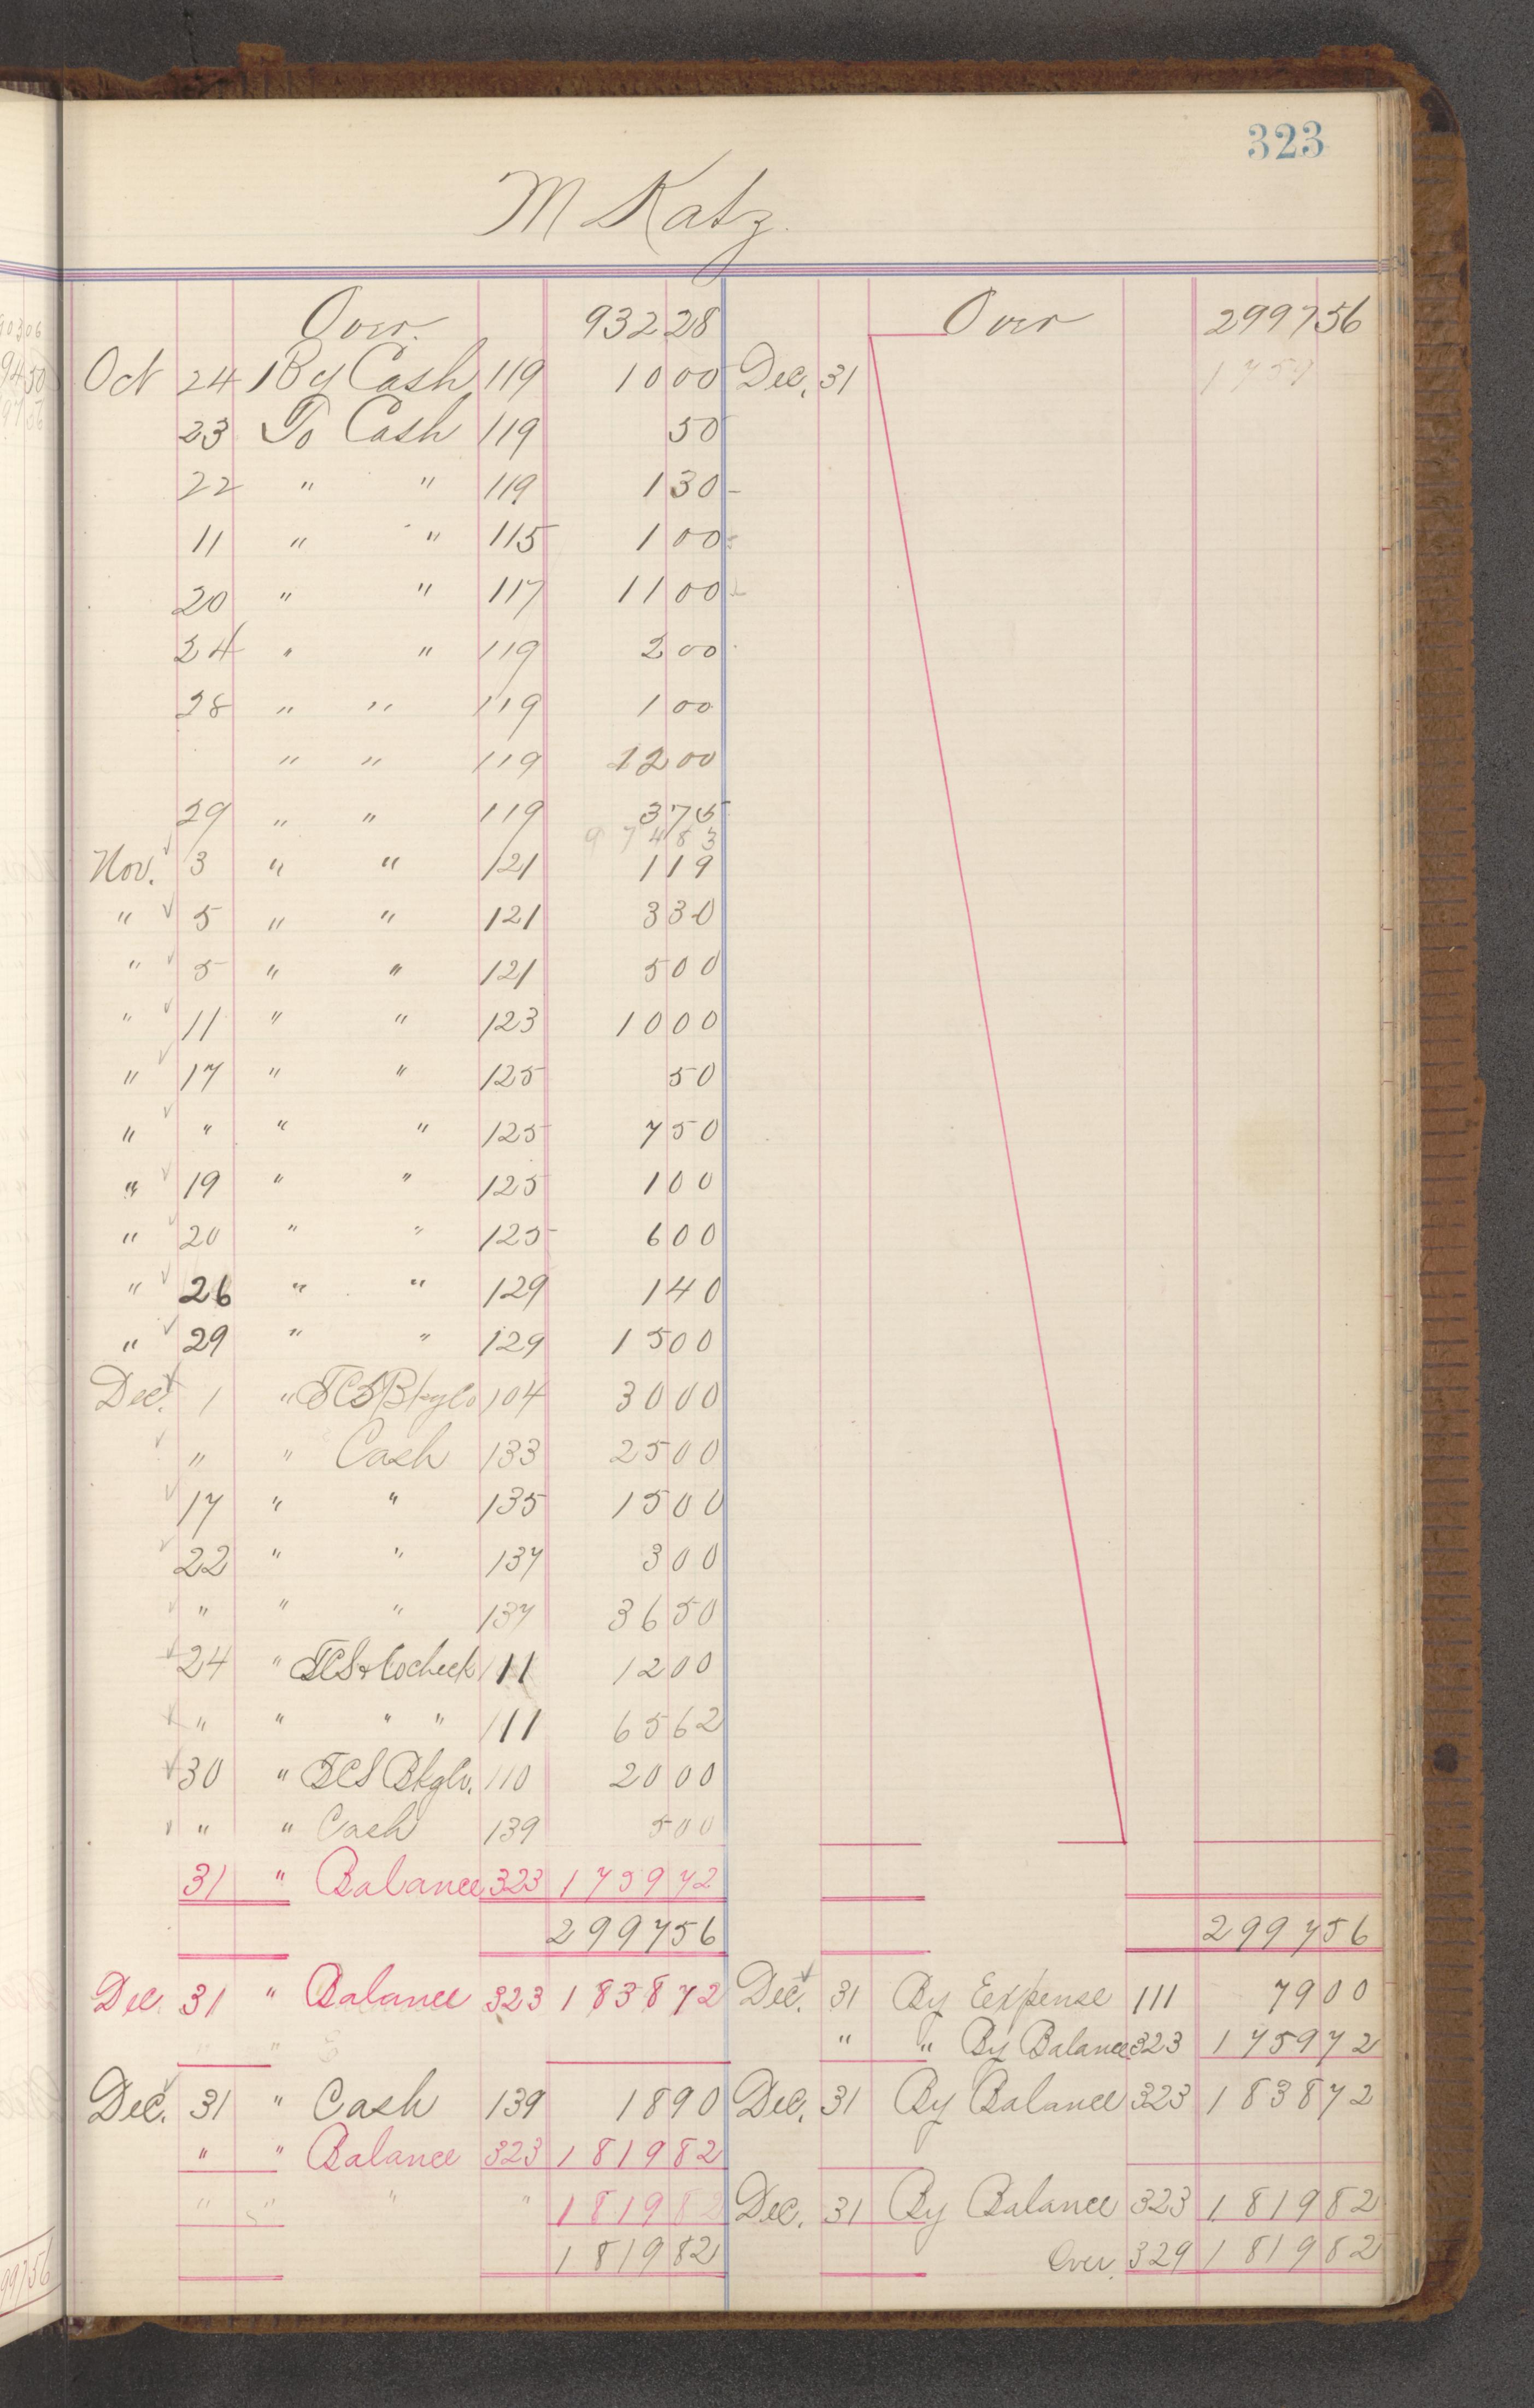 323
M Katz.
Over. 932 28 Over 2997 56
Oct 24 By Cash 119 10 00 Dec. 31
23 To Cash 119 50
22 " " 119 1 30
11 " " 115 1 00
20 " " 117 11 00
24 " " 119 2 00
28 " " 119 1 00
" " 119 12 00
29 " " 119 3 75
974 83
Nov. 3 " " 121 1 19
" 5 " " 121 3 30
" 5 " " 121 5 00
" 11 " " 123 10 00
" 17 " " 125 50
" " " " 125 7 50
" 19 " " 125 1 00
" 20 " " 125 6 00
" 26 " " 129 1 40
" 29 " " 129 15 00
Dec. 1 " 104 30 00
" " Cash 133 25 00
17 " " 135 15 00
22 " " 137 3 00
" " " 137 36 50
24 " 111 12 00
" " " " 111 65 62
30 " 110 20 00
" " Cash 139 5 00
31 " Balance 323 1759 72
2997 56 2997 56
Dec. 31 " Balance 323 1838 72 Dec. 31 By Expense 111 79 00
" " By Balance 323 1759 72
Dec. 31 " Cash 139 18 90 Dec. 31 By Balance 323 1838 72
" " Balance 323 1819 82
" " " " 1819 82 Dec. 31 By Balance 323 1819 82
1819 82 Over. 329 1819 82